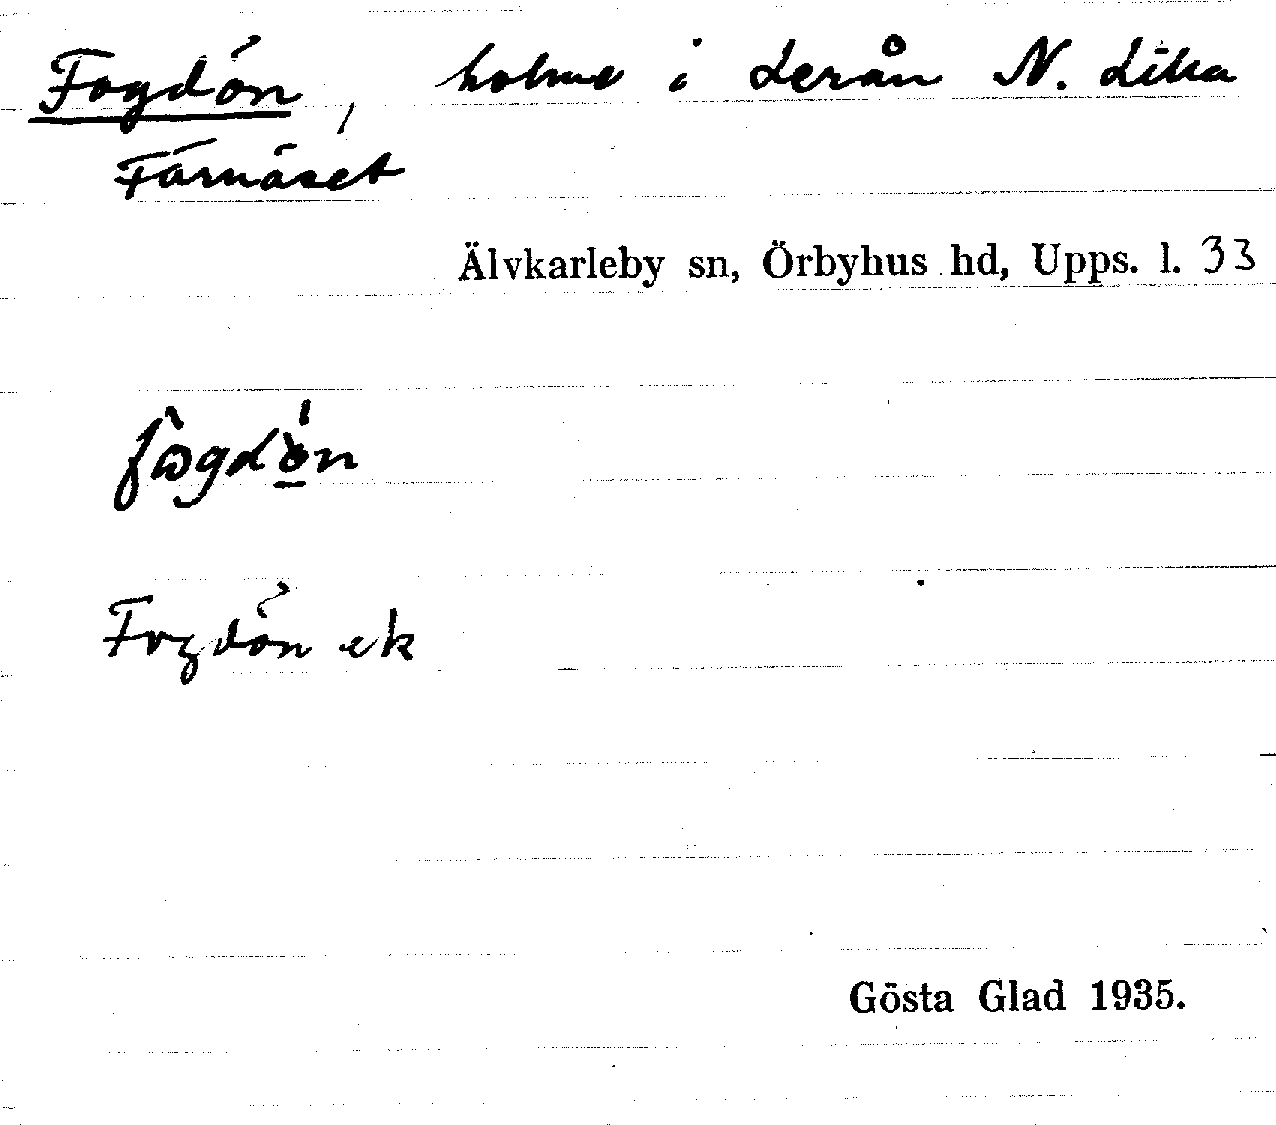 Fogdön, holme i Lerån N. Lilla
Fårnäset
Älvkarleby sn, Örbyhus hd, Upps. l. 33
Fogdön ek
Gösta Glad 1935.